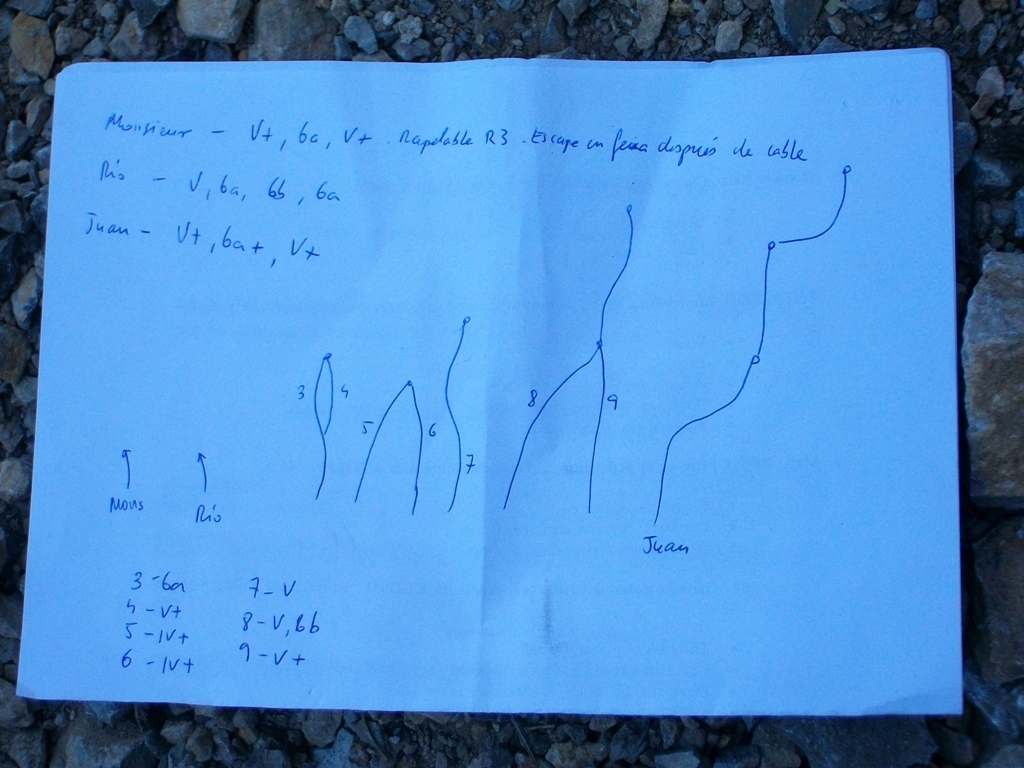 Monsieur - V+, 6a, V+. Rapelable R3. Escape en feixa después de cable
Río - V, 6a, 6b, 6a
Juan - V+, 6a+, V+
3 4
5 6
7
8 9
Mons
Río
Juan
3 - 6a
4 - V+
5 - IV+
6 - IV+
7 - V
8 - V, 6b
9 - V+